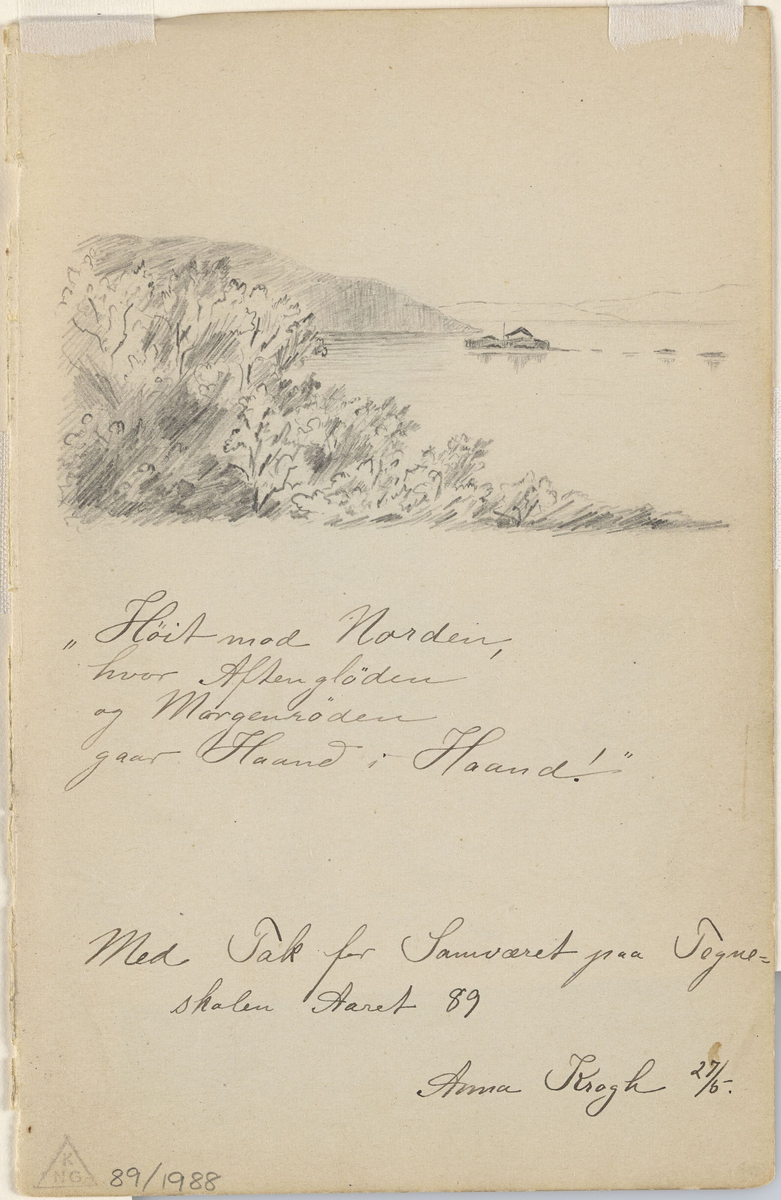 „Höit mod Norden,
hvor Aftenglöden
og Morgenröden
gaar Haand i Haand!"
Med Tak for Samværet paa Tegne=
skolen Aaret 89
Anna Krogh 27/5.
K
NG
89/1988